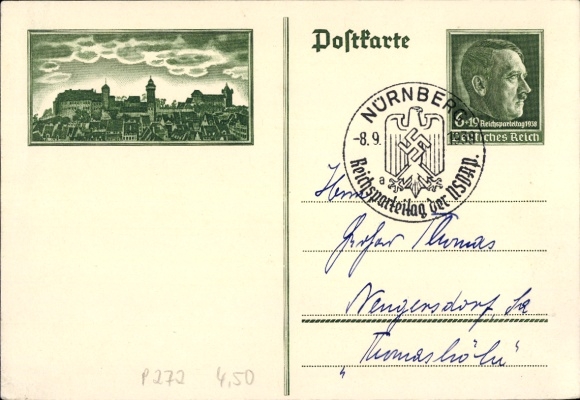 Postkarte
6+19 Reichsparteitag 1938
Deutsches Reich
NÜRNBERG
-8.9. 1938
a
Reichsparteitag der NSDAP.
Herrn
Thomas
"Thomashöhe"
P272 4,50